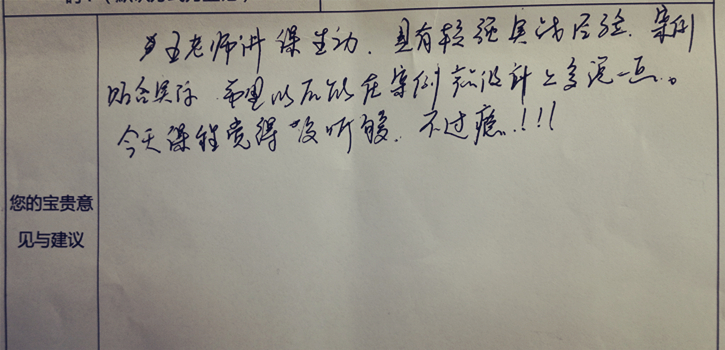 王老师讲课生动、具有较强实战经验、案例
贴合实际 希望以后能在案例和设计上多说一点。
今天课程觉得没听够、不过瘾!!!
您的宝贵意
见与建议